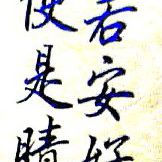 若安好
便是晴